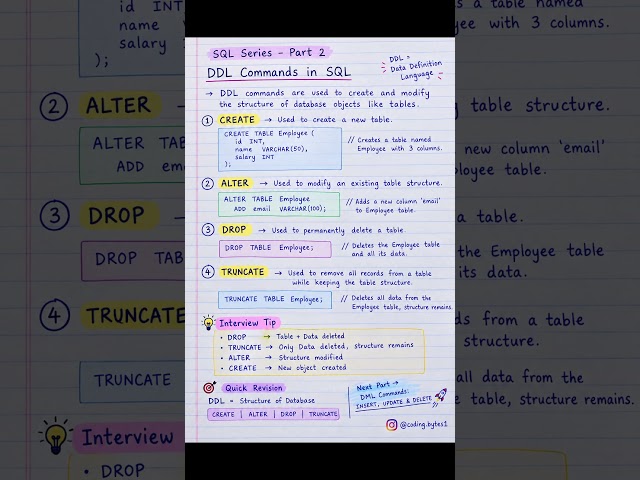 SQL Series - Part 2
DDL Commands in SQL
DDL =
Data Definition
Language
→ DDL commands are used to create and modify
the structure of database objects like tables.
1 CREATE → Used to create a new table.
CREATE TABLE Employee (
id INT,
name VARCHAR(50),
salary INT
);
// Creates a table named
Employee with 3 columns.
2 ALTER → Used to modify an existing table structure.
ALTER TABLE Employee
ADD email VARCHAR(100);
// Adds a new column 'email'
to Employee table.
3 DROP → Used to permanently delete a table.
DROP TABLE Employee;
// Deletes the Employee table
and all its data.
4 TRUNCATE → Used to remove all records from a table
while keeping the table structure.
TRUNCATE TABLE Employee;
// Deletes all data from the
Employee table, structure remains.
Interview Tip
• DROP → Table + Data deleted
• TRUNCATE → Only Data deleted, structure remains
• ALTER → Structure modified
• CREATE → New object created
Quick Revision
DDL = Structure of Database
CREATE | ALTER | DROP | TRUNCATE
Next Part →
DML Commands:
INSERT, UPDATE & DELETE
@coding.bytes1
id INT,
name
salary
);
2 ALTER
ALTER TAB
ADD ema
3 DROP
DROP TAB
4 TRUNCAT
TRUNCATE
Interview
• DROP
a table named
ee with 3 columns.
table structure.
new column 'email'
oyee table.
a table.
the Employee table
its data.
ds from a table
structure.
all data from the
table, structure remains.